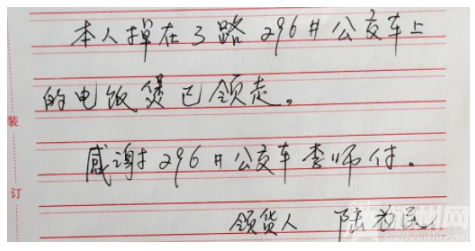 本人掉在3路296#公交车上
的电饭煲已领走。
感谢296#公交车李师付。
领货人 陆为民
装
订